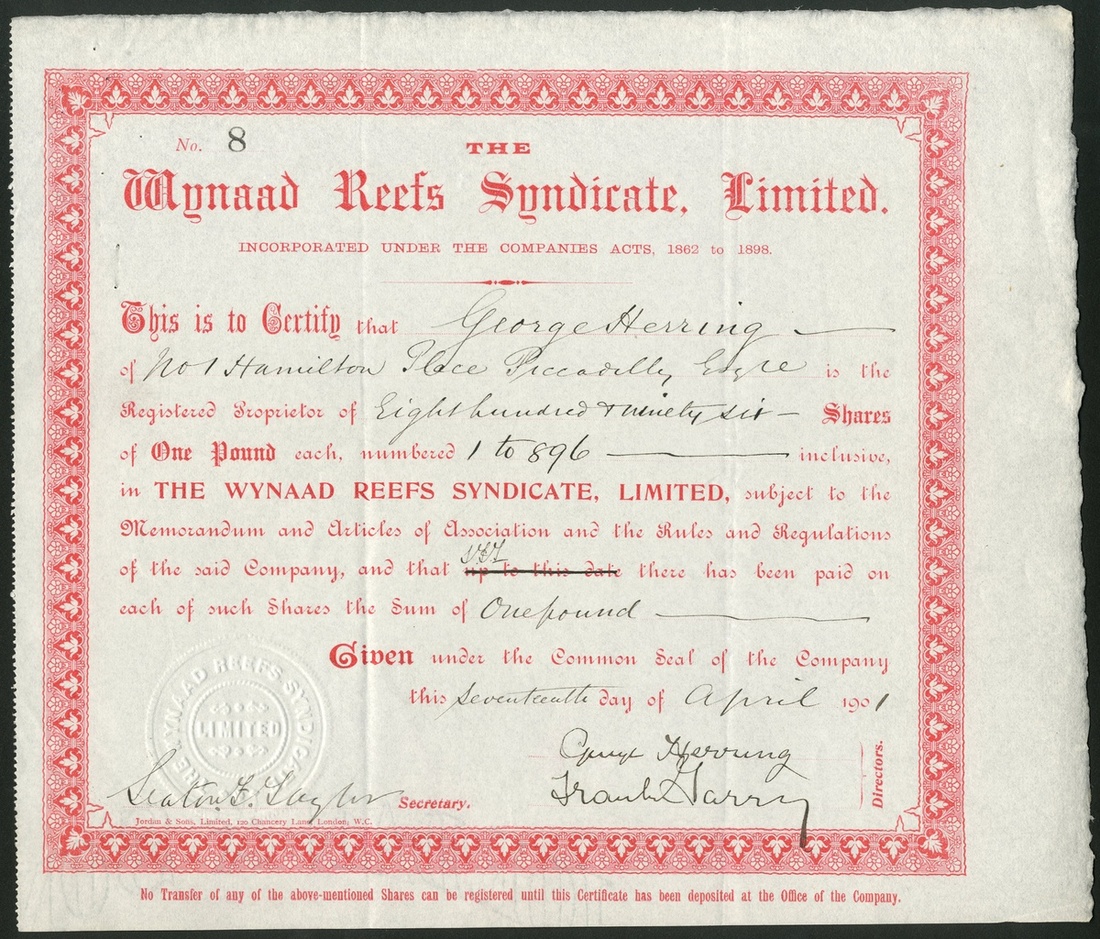 No. 8
THE
Wynaad Reefs Syndicate, Limited.
INCORPORATED UNDER THE COMPANIES ACTS, 1862 to 1898.
This is to Certify that George Herring
of No 1 Hamilton Place Piccadilly Esqre is the
Registered Proprietor of Eight hundred & ninety six Shares
of One Pound each, numbered 1 to 896 inclusive,
in THE WYNAAD REEFS SYNDICATE, LIMITED, subject to the
Memorandum and Articles of Association and the Rules and Regulations
of the said Company, and that up to this date there has been paid on
each of such Shares the Sum of One pound
Given under the Common Seal of the Company
this Seventeenth day of April 1901
THE WYNAAD REEFS SYNDICATE
LIMITED
George Herring
Frank Harry
Directors.
Seaton F. Taylor Secretary.
Jordan & Sons, Limited, 120 Chancery Lane, London, W.C.
No Transfer of any of the above-mentioned Shares can be registered until this Certificate has been deposited at the Office of the Company.